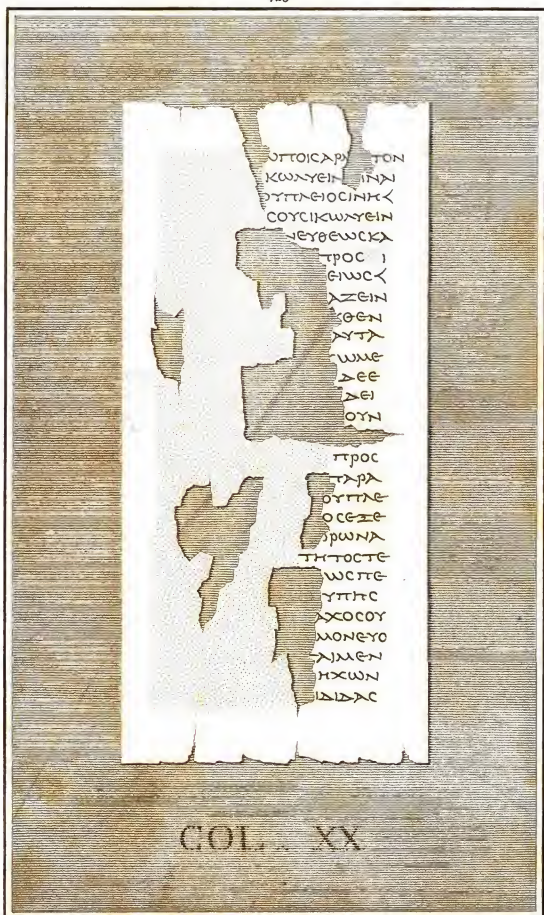 ΟΠΟΙϹΑΡΑ ΤΟΝ
ΚΩΛΥΕΙΝ ΙΝΑΙ
ΟΥΠΛΕΙΟϹΙΝΗΥ
ϹΟΥϹΙΚΩΛΥΕΙΝ
ΚΩ ΕΥΘΕΩϹΚΑ
ΠΡΟϹ
ΕΙΩϹΥ
ΑΝΕΙΝ
ΘΕΝ
ΑΥΤΑ
ΩΜΕ
ΔΕΕ
ΔΕΙ
ΟΥΝ
ΠΡΟϹ
ΤΑΡΑ
ΟΥΠΛΕ
ΟϹΕΞΕ
ΟΡΩΝΑ
ΤΗΤΟϹΤΕ
ΩϹΠΕ
ΥΠΗϹ
ΑΧΟϹΟΥ
ΜΟΝΕΥΟ
ΑΙΜΕΝ
ΗΧΩΝ
ΙΔΙΔΑϹ
COL . XX